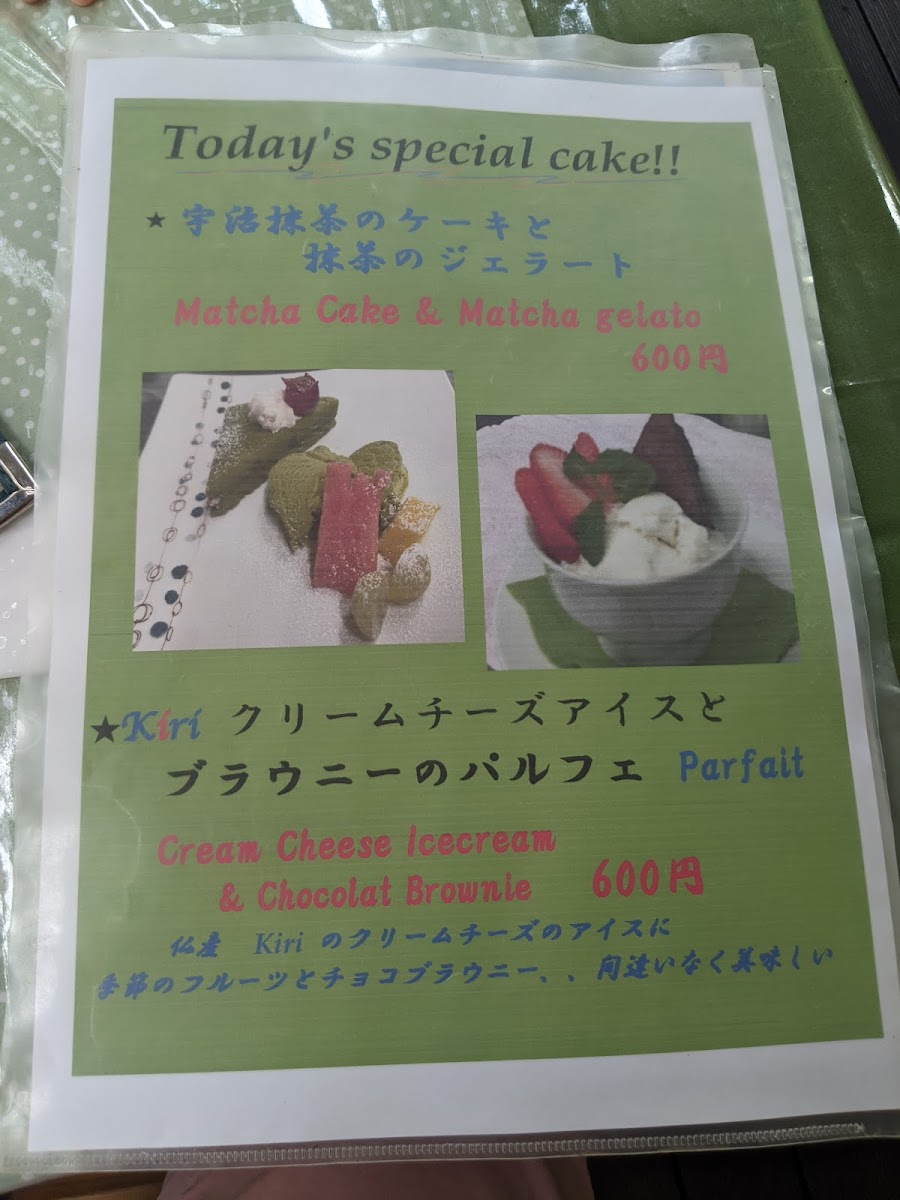 Today's special cake!!
★ 宇治抹茶のケーキと
抹茶のジェラート
Matcha Cake & Matcha gelato
600円
★Kiri クリームチーズアイスと
ブラウニーのパルフェ Parfait
Cream Cheese Icecream
& Chocolat Brownie 600円
仏産 Kiri のクリームチーズのアイスに
季節のフルーツとチョコブラウニー、、間違いなく美味しい